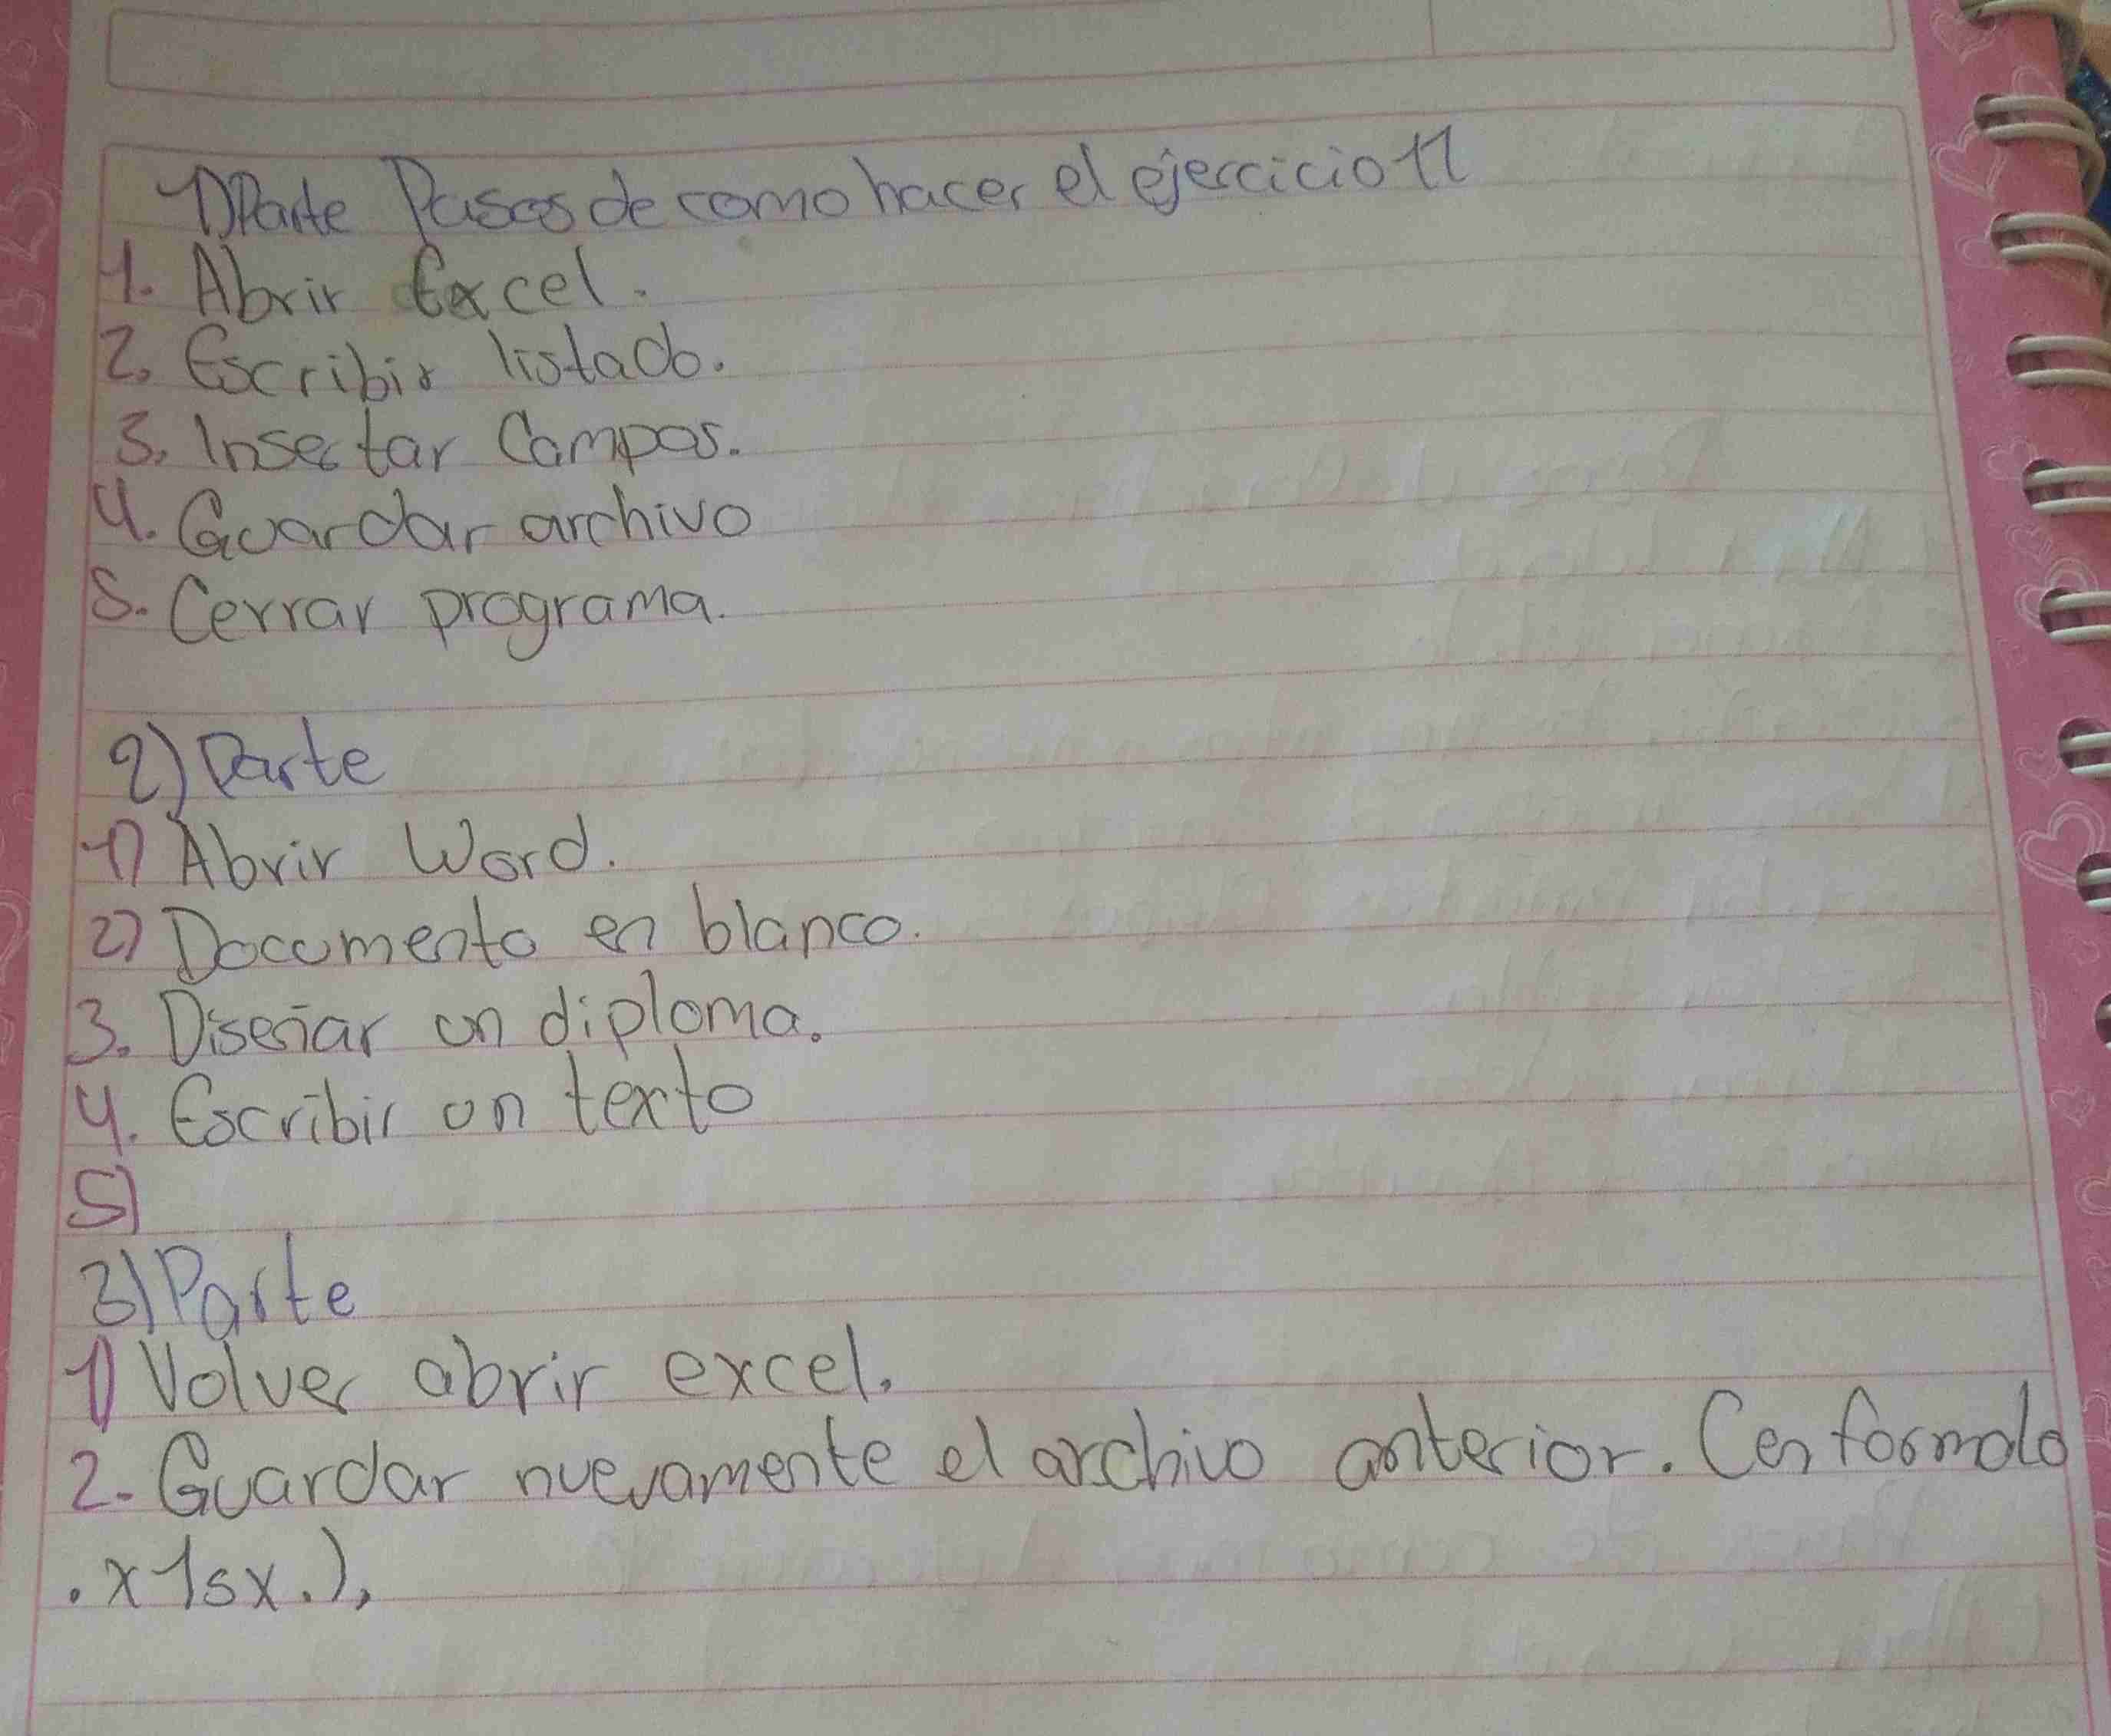 1) Parte Pasos de como hacer el ejercicio 11
1. Abrir Excel.
2. Escribir listado.
3. Insertar Campos.
4. Guardar archivo
5. Cerrar programa.
2) Parte
1) Abrir Word.
2) Documento en blanco.
3. Diseñar un diploma.
4. Escribir un texto
5)
3) Parte
1) Volver abrir excel.
2. Guardar nuevamente el archivo anterior. (en formato
.xlsx.),